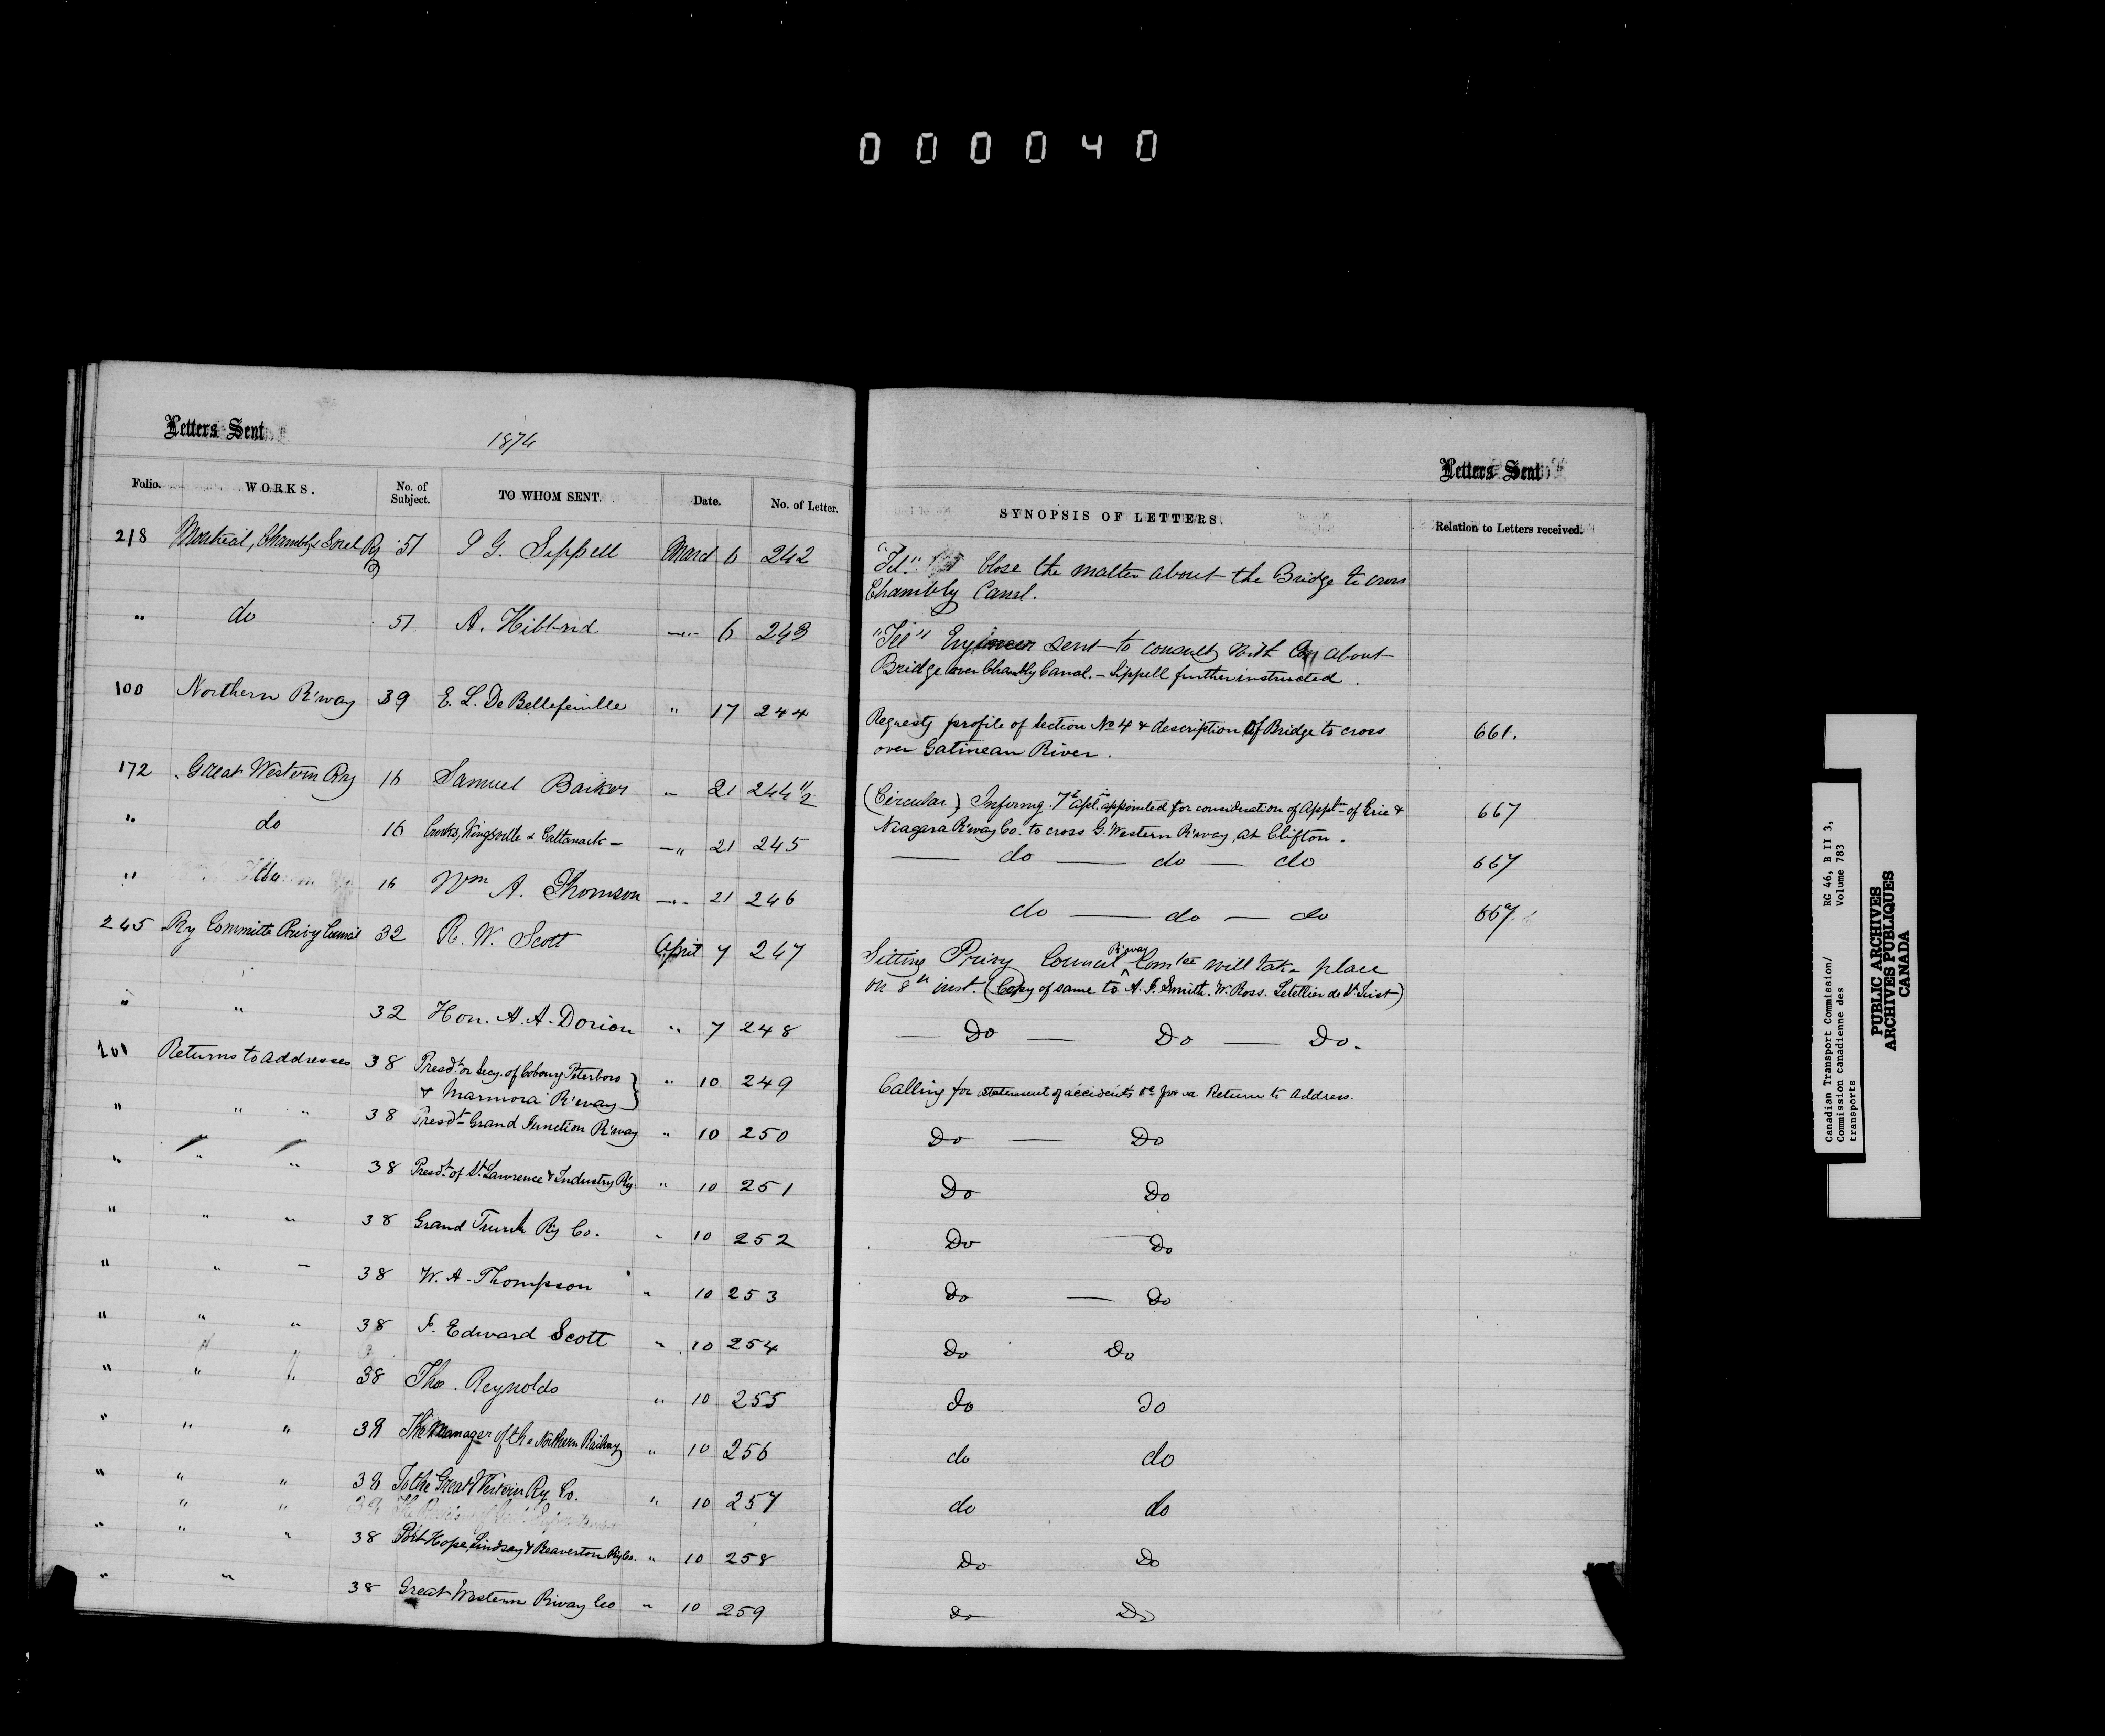 000040
Letters Sent
1874
Letters Sent
Folio. WORKS. No. of Subject. TO WHOM SENT. Date. No. of Letter. SYNOPSIS OF LETTERS. Relation to Letters received.
218 Montreal, Chambly & Sorel Ry 51 J G. Sippell March 6 242 "Tel." Close the matter about the Bridge to cross
Chambly Canal.
" do 51 A. Hibbard " 6 243 "Tel" Engineer sent to consult with Coy about
Bridge over Chambly Canal. - Sippell further instructed.
100 Northern R'way 39 E. L. De Bellefeuille " 17 244 Requests profile of section No 4 & description of Bridge to cross
over Gatineau River. 661.
172 Great Western Ry 16 Samuel Barker " 21 244 1/2 (Circular) Informg. 7th Apl. appointed for consideration of Appln of Erie &
Niagara R'way Co. to cross G. Western R'way at Clifton. 667
" do 16 Crooks, Kingsmille & Cattanach - " 21 245 do do do 667
" do 16 Wm A. Thomson " 21 246 do do do 667.
245 Ry Committe Privy Council 32 R. W. Scott April 7 247 Sitting Privy Council R'way Comtee will take place
on 8th inst. (Copy of same to A. J. Smith. W. Ross. Letellier de St. Just)
" " 32 Hon. A. A. Dorion " 7 248 Do Do Do.
101 Returns to Addresses 38 Presdt. or Secy. of Cobourg Peterboro
& Marmora R'way } " 10 249 Calling for statement of accidents &c for a Return to Address.
" " " 38 Presdt. Grand Junction R'way " 10 250 Do Do
" " " 38 Presdt. of St. Lawrence & Industry Ry. " 10 251 Do Do
" " " 38 Grand Trunk Ry Co. " 10 252 Do Do
" " " 38 W. A. Thompson " 10 253 Do Do
" " " 38 J. Edward Scott " 10 254 Do Do
" " " 38 Tho. Reynolds " 10 255 do do
" " " 38 The Manager of the Northern Railway " 10 256 do do
" " " 38 To the Great Western Ry Co. " 10 257 do do
" " " 38 Port Hope, Lindsay & Beaverton Ry Co. " 10 258 Do Do
" " 38 Great Western R'way Co " 10 259 Do Do
Canadian Transport Commission/ RG 46, B II 3,
Commission canadienne des Volume 783
transports
PUBLIC ARCHIVES
ARCHIVES PUBLIQUES
CANADA